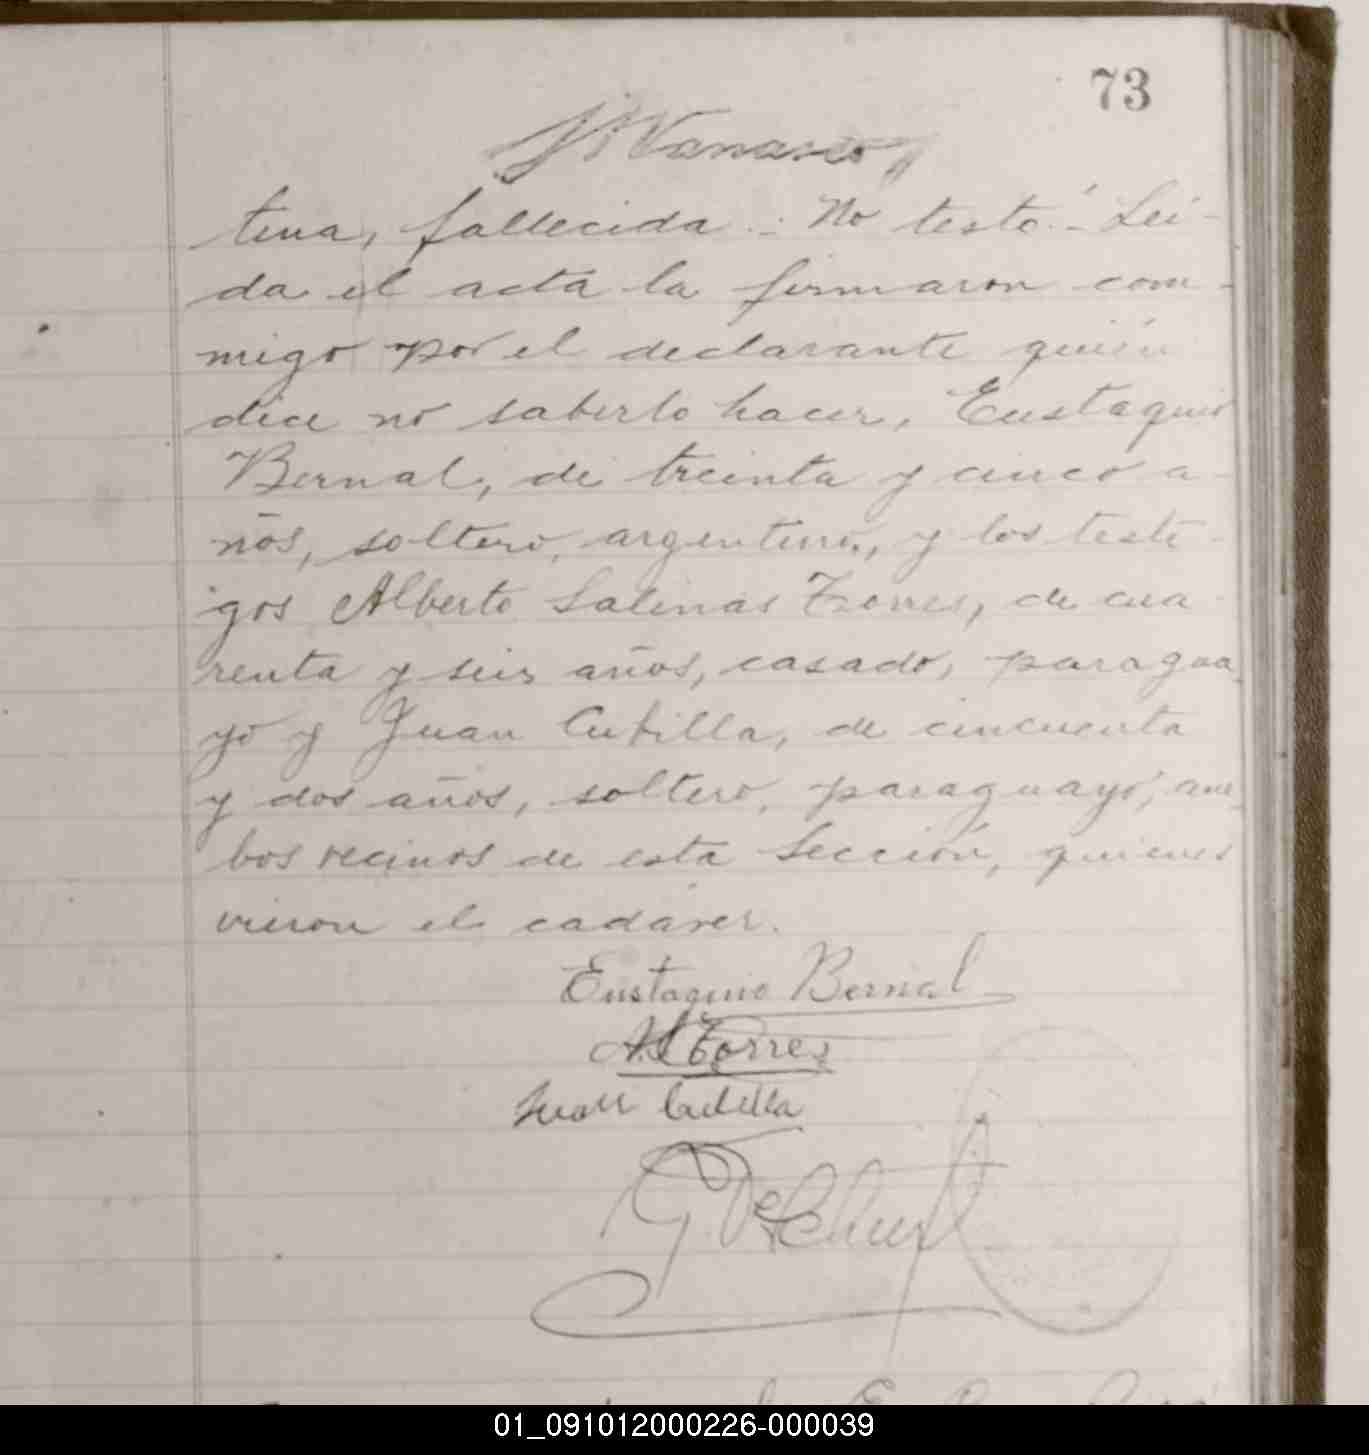 73
tina, fallecida.- No testó.- Leí-
da el acta la firmaron con-
migo por el declarante quién
dice no saberlo hacer, Eustaquio
Bernal, de treinta y cinco a-
ños, soltero, argentino, y los testi-
gos Alberto Salinas Torres, de cua-
renta y seis años, casado, paragua-
yo y Juan Cubilla, de cincuenta
y dos años, soltero, paraguayo, am-
bos vecinos de esta Sección, quienes
vieron el cadáver.
Eustaquio Bernal
A.S. Torres
Juan Cubilla
01_091012000226-000039